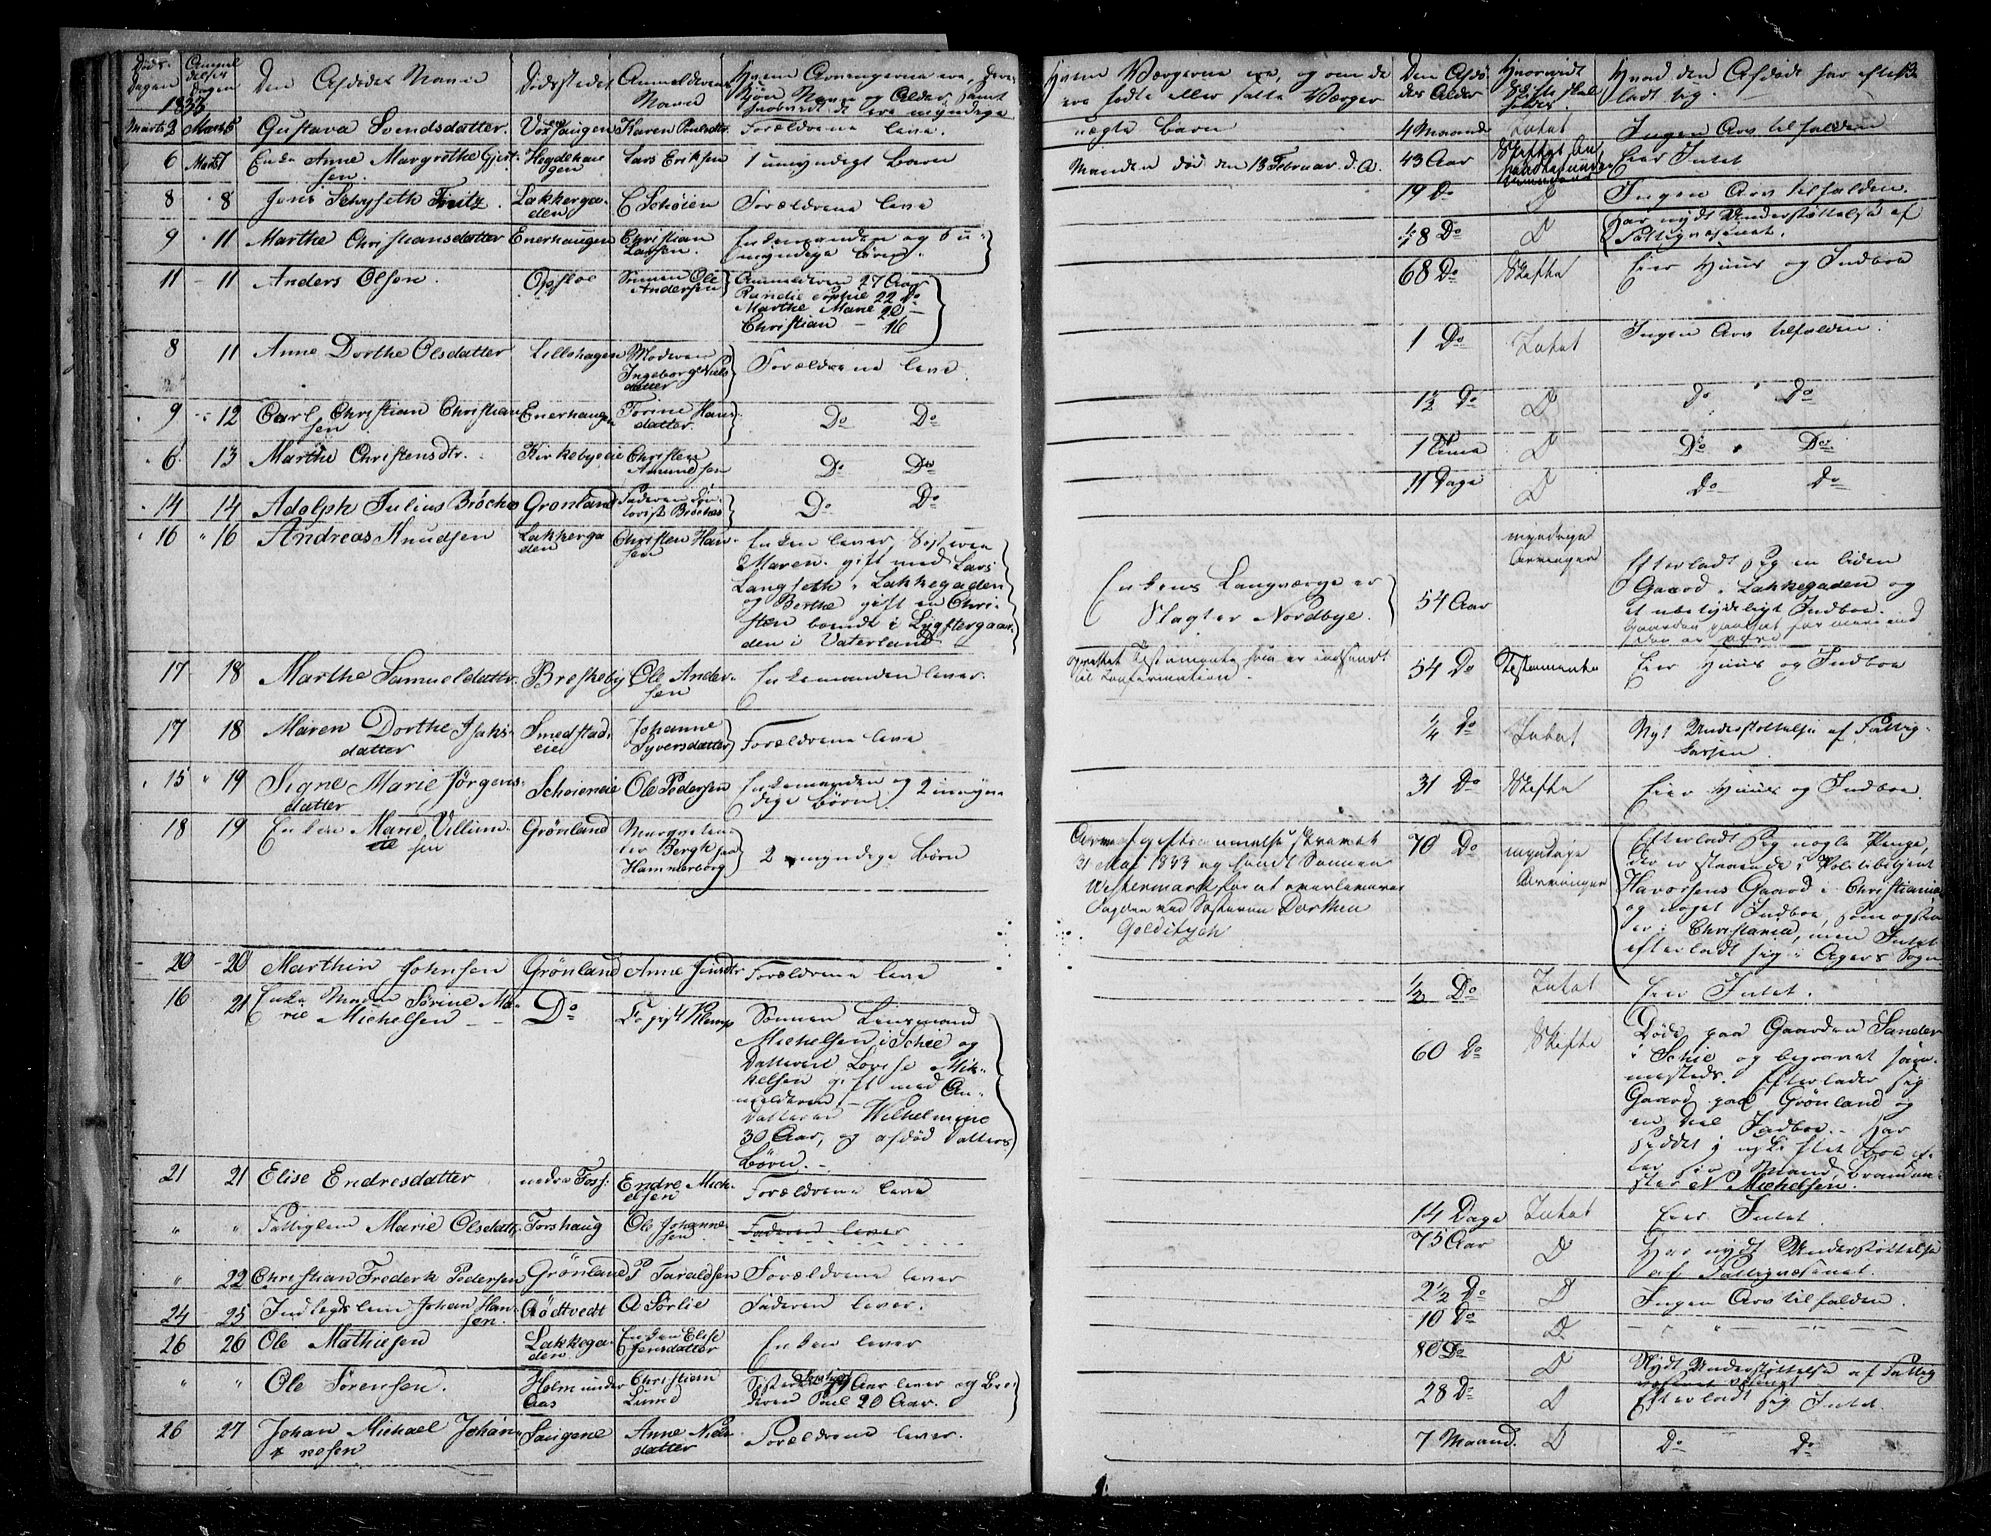 Døds-
Dagen
Anmel
delses
Dagen
Den Afdødes Navn
Dødsstedet
Anmelderens
Navn
1836
Hvem Værgerne ere, og om de
ere fødte eller satte Værger
Den Afdø-
des Alder
Hvad den Afdøde har efter-
ladt sig.
Marts 3 Marts 5 Gustava Svendsdatter. Karen Paulsdtr Forældrene leve.
uægte Barn 4 Maaneder Intet Ingen Arv tilfalden
6 Marts 7 Enke Anne Margrethe Gjert-
sen.
Hegdehau
gen
Lars Eriksen 1 umyndigt Barn
Manden død den 13 Februar d. A. 43 Aar Eier Intet
8 8 Jens Seyseth Fritz. Lakkerga-
den
C Schøien Forældrene leve
19 Do D Ingen Arv tilfalden.
9 11 Marthe Christiansdatter Enerhaugen Christian
Larsen
Enkemanden og 5 u-
myndige børn.
48 Do D Har nydt Understøttelse af
Fattigvæsenet.
11 11 Anders Olsen. Opsloe Sønnen Ole
Andersen
Anmelderen 27 Aar
Randie Sophie 22 Do
Marthe Marie 20 -
Christian - 16
68 Do Skifte Eier Huus og Indboe
8 11 Anne Dorthe Olsdatter Lillohagen Moderen
Ingeborg Niels
datter
Forældrene leve.
1 Do Intet Ingen Arv tilfalden.
9 12 Carl Christian Christian
sen.
Enerhaugen Torine Hans
datter.
Do Do
1½ Do D Do Do
6 13 Marthe Christensdtr. Kirkebyeie Christen
Amundsen
Do Do
1 Time D Do Do
14 14 Adolph Julius Brochs Grønland Faderen
Do Do
11 Dage D Do Do
16 16 Andreas Knudsen Lakkerga
den
Christen Han-
sen
Enken lever, Søstren
Maren gift med Lars
Langseth i Lakkegaden
og Berthe gift en Chri-
sten boende i Lygtergaar-
den i Vaterland.
Enkens Laugværge er
Slagter Nordbye.
54 Aar
myndige
Arvinger
Efterladt sig en liden
Gaard i Lakkegaden og
et ubetydeligt Indboe.
17 18 Marthe Samuelsdatter. Breskeby Ole Ander-
sen
Enkemanden lever.
oprettet Testamente som er indsendt
til Confirmation.
54 Do Testamente Eier Huus og Indboe
17 18 Maren Dorthe Isaks-
datter
Smedstad-
eie
Johanne
Syversdatter
Forældrene leve
¼ Do Intet Nyt Understøttelse af Fattig-
kassen.
15 19 Signe Marie Jørgens-
datter
Schøieneie Ole Pedersen Enkemanden og 2 umyn
dige børn
31 Do Skifte Eier Huus og Indboe.
18 19 Enken Marie Villum-
sen
Grønland
Bergh paa
Hammerborg
2 myndige børn
31 Mai 1833 og Sønnen
Westermark for at overleveres
Dorthea
Golditsch
70 Do myndige
Arvinger
Efterladt sig nogle Penge,
der er staaende i Politibetjent
Havorsens Gaard i Christiania
og noget Indboe, som ogsaa
er i Christiania, men Intet
efterladt sig i Agers Sogn
20 20 Marthin Johnsen Grønland Anne Forældrene leve
½ Do Intet Eier Intet.
16 21 Enke Madm Sørine Ma-
rie Michelsen
Do
Sønnen Lensmand
Michelsen i Schie og
Datteren Lovise Mik-
kelsen gift med An-
melderen -
Datteren Wilhelmine
30 Aar, og afdød Datters
Børn. -
60 Do Skifte
Døde paa Gaarden Sander
i Schie og begravet sam-
mesteds. Efterlader sig
Gaard paa Grønland og
en Deel Indboe. - har
siddet i uskiftet Boe ef-
ter sin Mand Brandme-
ster N Michelsen.
21 21 Elise Endresdatter nedre Foss Endre Mich-
elsen
Forældrene leve
14 Dage Intet Eier Intet.
" " Fattiglem Marie Olsdatter Torshaug Ole Johanne-
sen.
Faderen lever
75 Aar D Har nydt Understøttelse
af Fattigvæsenet.
" 22 Christian Frederk Pedersen Grønland P Taraldsen Forældrene lever
2½ Do D Ingen Arv tilfalden
24 25 Indlegslem Johan Han-
sen
Rödtvedt A Sørlie Faderen lever.
10 Do D
26 26 Ole Mathiesen Lakkega-
den
Enken Elise
Jensdatter
Enken lever
80 Do D Nydt Understøttelse af Fattig
væsenet
" " Ole Sørensen. Holm under
Aas
Christian
Lund
Søster 19 Aar lever og Bro-
deren Paul 20 Aar.
28 Do D Efterladt sig Intet.
26 27 Johan Michael Johan-
nesen
Saugene Anne Niels
datter
Forældrene lever.
7 Maand. D Do Do